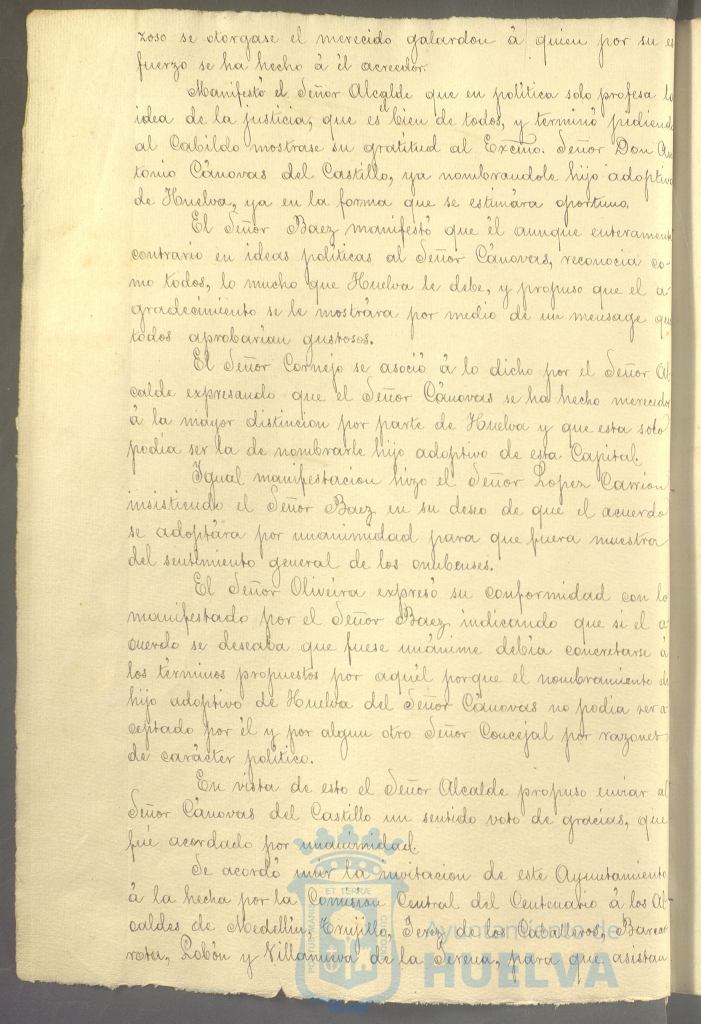 zoso se otorgase el merecido galardon á quien por su es
fuerzo se ha hecho á él acreedor.
Manifestó el Señor Alcalde que en política solo profesa la
idea de la justicia, que es el bien de todos, y terminó pidiendo
al Cabildo mostrase su gratitud al Excmo. Señor Don An
tonio Cánovas del Castillo, ya nombrandole hijo adoptivo
de Huelva, ya en la forma que se estimára oportuno.
El Señor Baez manifestó que él aunque enteramente
contrario en ideas políticas al Señor Cánovas, reconocia co-
mo todos, lo mucho que Huelva le debe, y propuso que el a-
gradecimiento se le mostrára por medio de un mensage que
todos aprobarian gustosos.
El Señor Cornejo se asoció á lo dicho por el Señor Al-
calde expresando que el Señor Cánovas se ha hecho merecedor
á la mayor distincion por parte de Huelva y que esta solo
podía ser la de nombrarle hijo adoptivo de esta Capital.
Igual manifestacion hizo el Señor Lopez Carrion
insistiendo el Señor Baez en su deseo de que el acuerdo
se adoptára por unanimidad para que fuera muestra
del sentimiento general de los onubenses.
El Señor Oliveira expresó su conformidad con lo
manifestado por el Señor Baez indicando que si el a-
cuerdo se deseaba que fuese unánime debía concretarse á
los términos propuestos por aquél porque el nombramiento de
hijo adoptivo de Huelva del Señor Cánovas no podía ser a
ceptado por él y por algun otro Señor Concejal por razones
de carácter político.
En vista de esto el Señor Alcalde propuso enviar al
Señor Cánovas del Castillo un sentido voto de gracias, que
fué acordado por unanimidad.
Se acordó unir la invitacion de este Ayuntamiento
á la hecha por la Comision Central del Centenario á los Al-
caldes de Medellin, Trujillo, Jerez de los Caballeros, Barcar
rota, Lobón y Villanueva de la Serena, para que asistan
PORTUS MARIS ET TERRE CUSTODIA
Ayuntamiento de
HUELVA